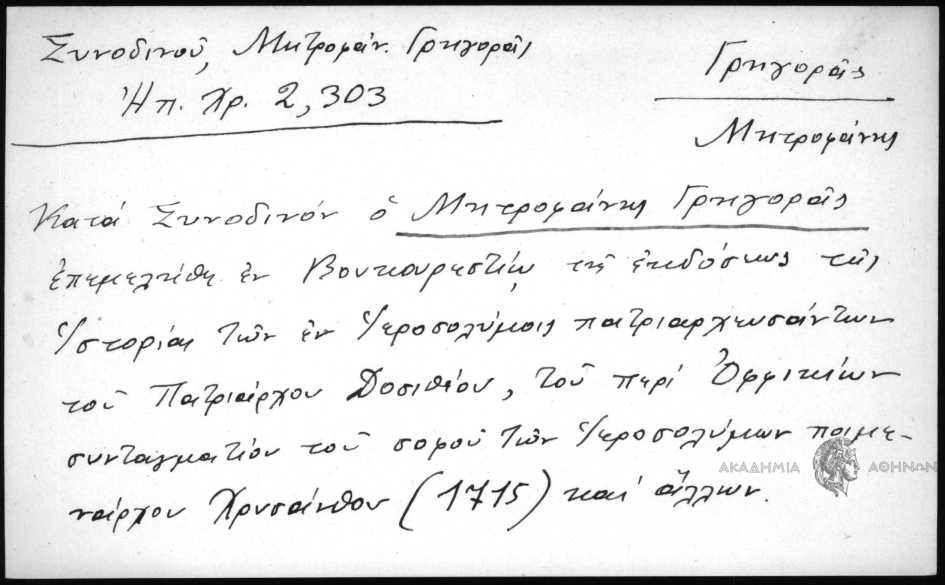 Συνοδινοῦ, Μητροφάν. Γρηγορᾶς
Ἠπ. Χρ. 2, 303
Γρηγορᾶς
Μητροφάνης
Κατά Συνοδινόν ὁ Μητροφάνης Γρηγορᾶς
ἐπεμελήθη ἐν Βουκουρεστίῳ τῆς ἐκδόσεως τῆς
Ἱστορίας τῶν ἐν Ἱεροσολύμοις πατριαρχευσάντων
τοῦ Πατριάρχου Δοσιθέου, τοῦ περί Ὀφφικίων
συνταγματίου τοῦ σοφοῦ τῶν Ἱεροσολύμων ποιμε-
νάρχου Χρυσάνθου (1715) καί ἄλλων.
ΑΚΑΔΗΜΙΑ ΑΘΗΝΩΝ